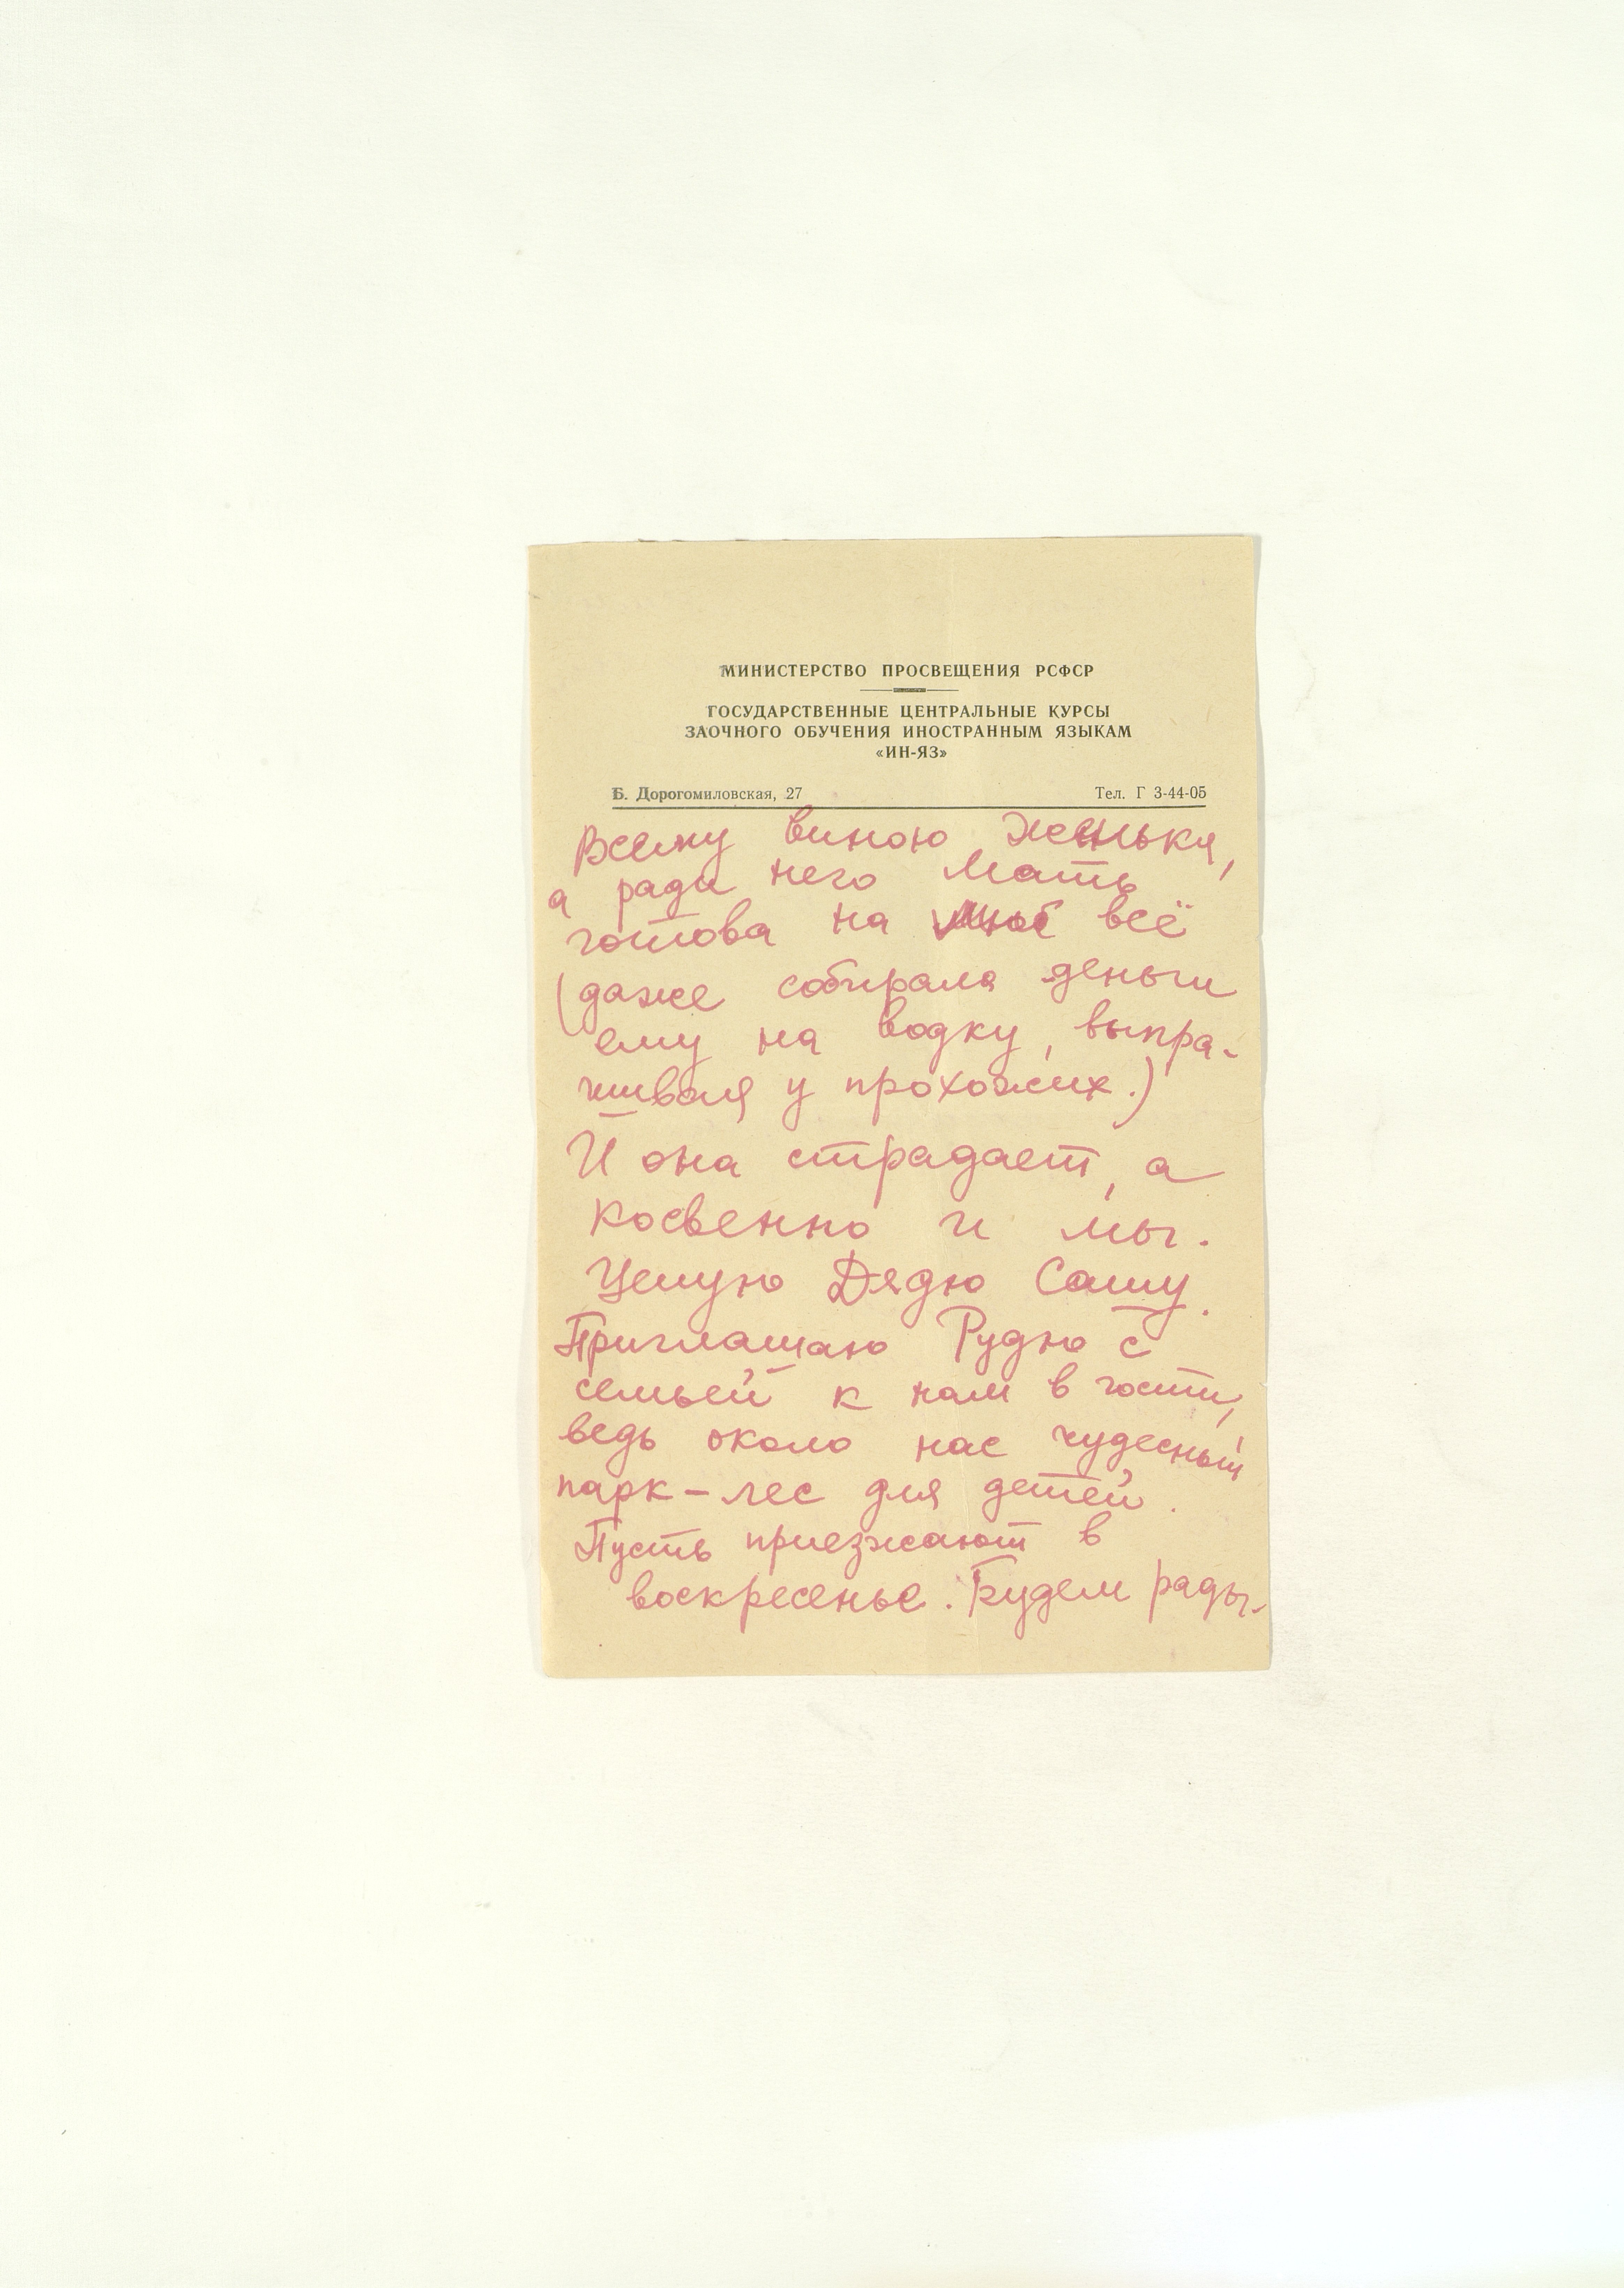 МИНИСТЕРСТВО ПРОСВЕЩЕНИЯ РСФСР
ГОСУДАРСТВЕННЫЕ ЦЕНТРАЛЬНЫЕ КУРСЫ
ЗАОЧНОГО ОБУЧЕНИЯ ИНОСТРАННЫМ ЯЗЫКАМ
«ИН-ЯЗ»
Б. Дорогомиловская, 27 Тел. Г 3-44-05
Всему виною Женька,
а ради него мать
готова на всё
(даже собирала деньги
ему на водку, выпра-
шивая у прохожих.)
И она страдает, а
косвенно и мы.
Целую Дядю Сашу.
Приглашаю Рудю с
семьей к нам в гости,
ведь около нас чудесный
парк-лес для детей.
Пусть приезжают в
воскресенье. Будем рады.